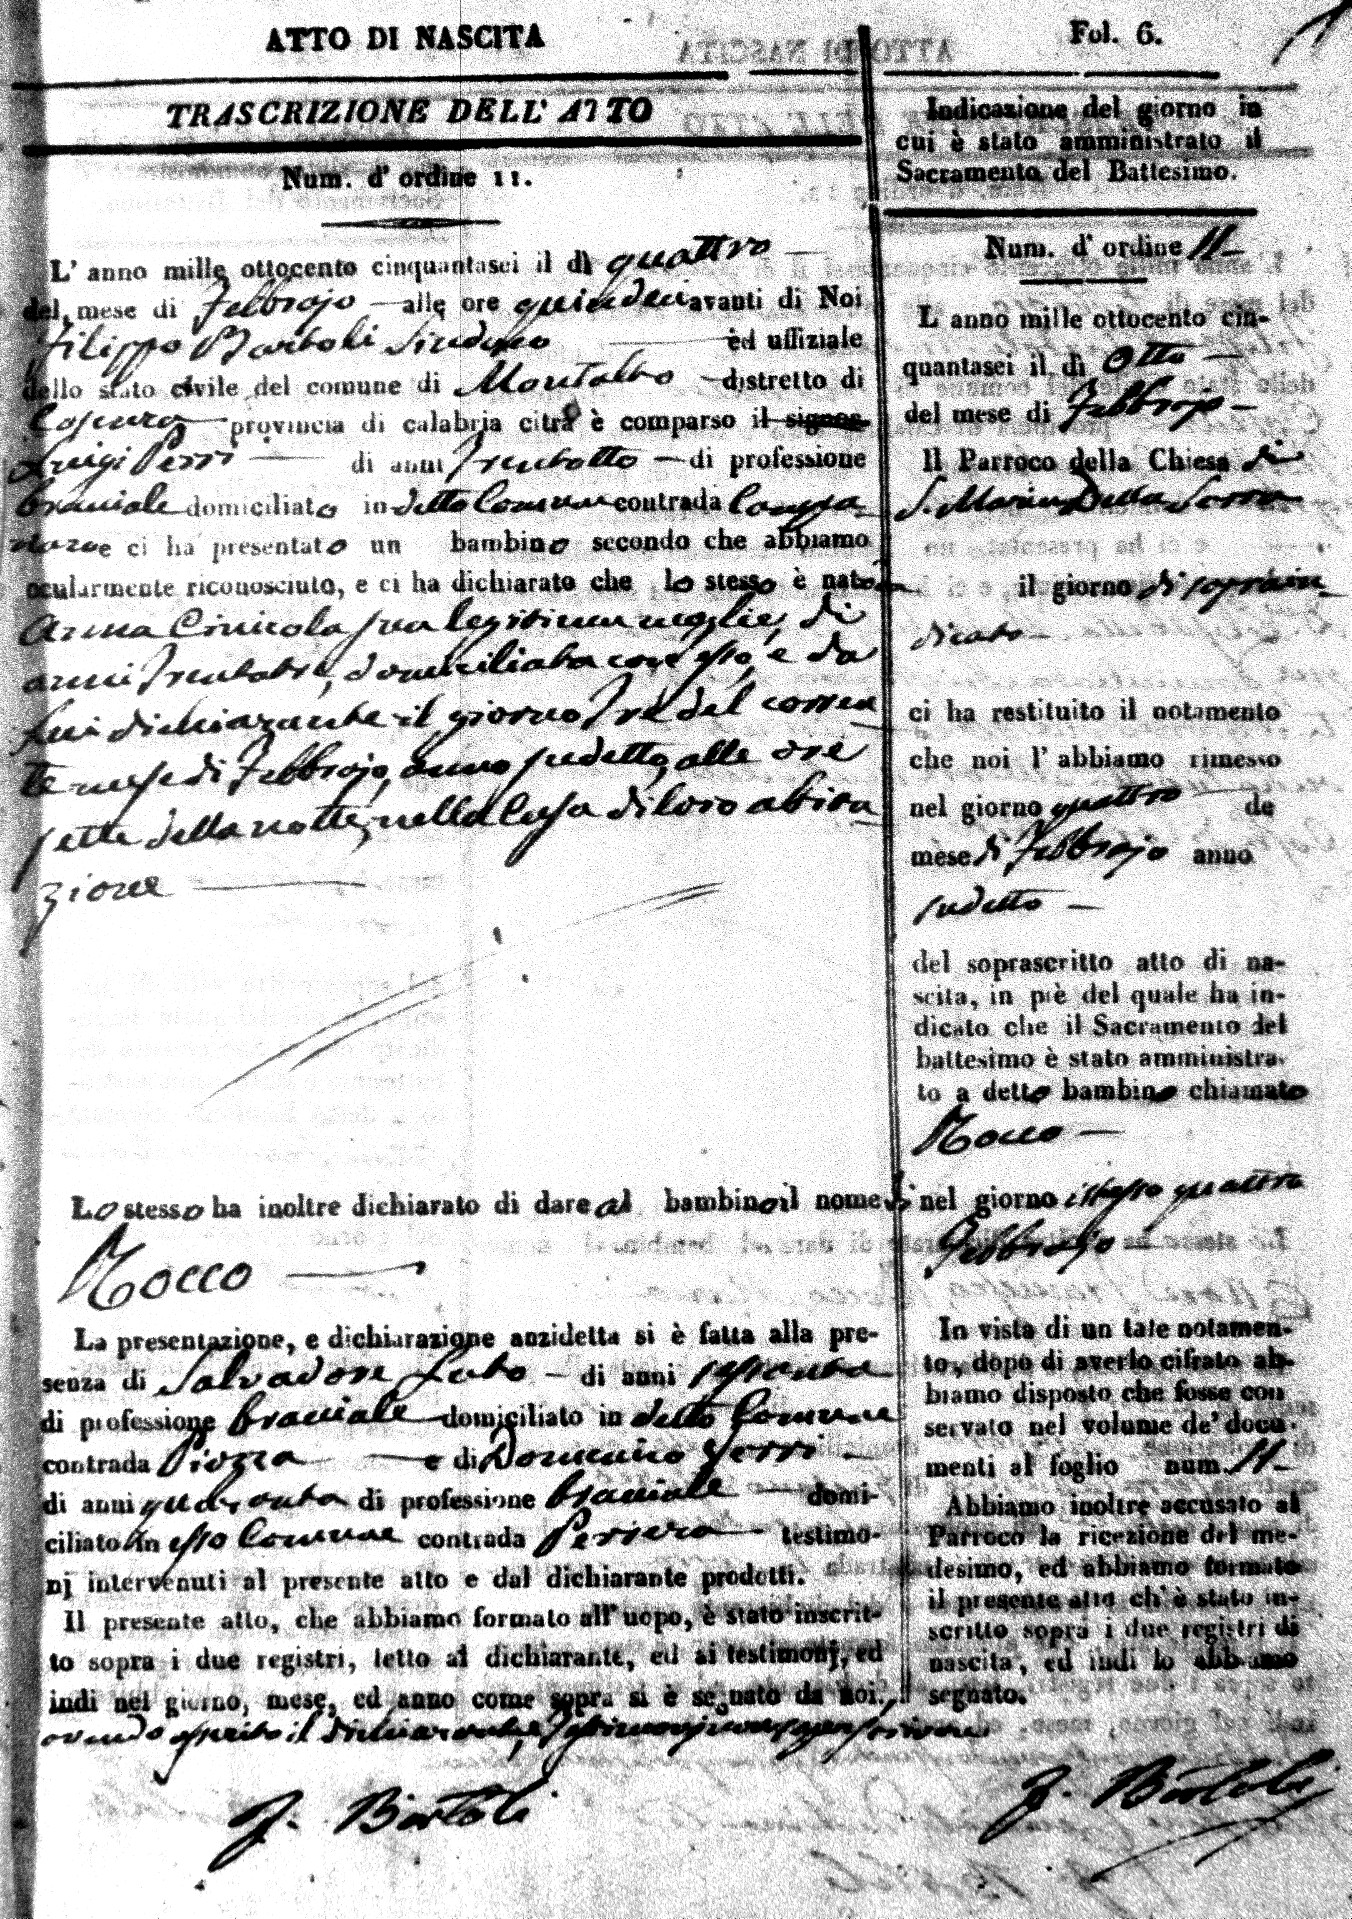 ATTO DI NASCITA
TRASCRIZIONE DELL' ATTO
Num. d' ordine 11.
L' anno mille ottocento cinquantasei il dì quattro
del mese di Febbrajo alle ore quindeci avanti di Noi
Filippo Bartoli Sindaco ed uffiziale
dello stato civile del comune di Montalto distretto di
Cosenza provincia di calabria citra è comparso il signor
Luigi Perri di anni trentotto di professione
bracciale domiciliato in detto Comune contrada
e ci ha presentato un bambino secondo che abbiamo
ocularmente riconosciuto, e ci ha dichiarato che lo stesso è nato da
Anna sua legittima moglie, di
anni trentatre, domiciliata con esso, e da
lui dichiarante il giorno tre del corren
te mese di Febbrajo, anno sudetto, alle ore
sette della notte, nella Casa di loro abita
zione
Lo stesso ha inoltre dichiarato di dare al bambino il nome di
Rocco
La presentazione, e dichiarazione anzidetta si è fatta alla pre-
senza di Salvadore di anni sessanta
di professione bracciale domiciliato in detto Comune
contrada Piazza e di Domenico
di anni quaranta di professione bracciale domi-
ciliato in esso Comune contrada testimo-
nj intervenuti al presente atto e dal dichiarante prodotti.
Il presente atto, che abbiamo formato all' uopo, è stato inscrit-
to sopra i due registri, letto al dichiarante, ed ai testimonj, ed
indi nel giorno, mese, ed anno come sopra si è segnato da noi.,
avendo asserito il dichiarante, testimonj non saper scrivere
F. Bartoli
Fol. 6.
Indicazione del giorno in
cui è stato amministrato il
Sacramento del Battesimo.
Num. d' ordine 11
L' anno mille ottocento cin-
quantasei il dì Otto
del mese di Febbrajo
Il Parroco della Chiesa di
S. Maria Della Serra
il giorno di sopra in
dicato
ci ha restituito il notamento
che noi l' abbiamo rimesso
nel giorno quattro de
mese di Febbrajo anno
sudetto
del soprascritto atto di na-
scita, in piè del quale ha in-
dicato che il Sacramento del
battesimo è stato amministra-
to a detto bambino chiamato
Rocco
nel giorno istesso quattro
Febbrajo
In vista di un tale notamen-
to, dopo di averlo cifrato ab-
biamo disposto che fosse con
servato nel volume de' docu-
menti al foglio num. 11
Abbiamo inoltre accusato al
Parroco la ricezione del me-
desimo, ed abbiamo formato
il presente atto ch' è stato in-
scritto sopra i due registri di
nascita, ed indi lo abbiamo
segnato.
F. Bartoli